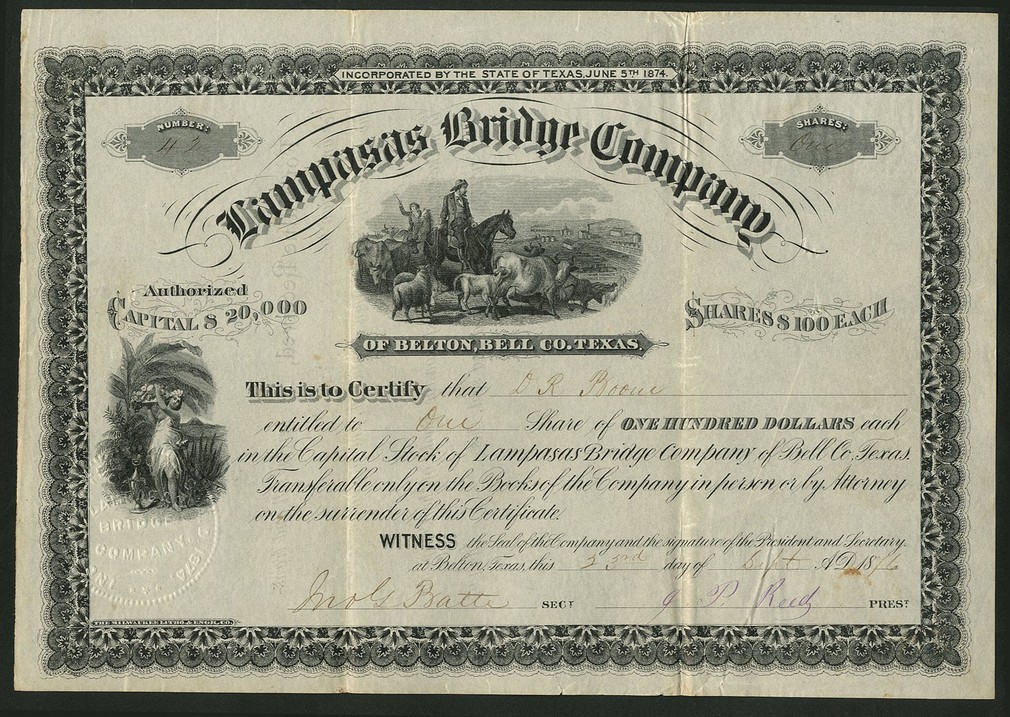 INCORPORATED BY THE STATE OF TEXAS, JUNE 5TH 1874.
NUMBER:
42
SHARES:
One
Lampasas Bridge Company
Authorized
CAPITAL $ 20,000
SHARES $ 100 EACH
OF BELTON, BELL CO. TEXAS,
This is to Certify that D R Boone
entitled to One Share of ONE HUNDRED DOLLARS each
in the Capital Stock of Lampasas Bridge Company of Bell Co. Texas.
Transferable only on the Books of the Company in person or by Attorney
on the surrender of this Certificate.
WITNESS the Seal of the Company and the signature of the President and Secretary.
at Belton, Texas, this 23rd day of Sept A.D. 1876
Jno G Batte SECT J P Reed PREST
BRIDGE
COMPANY.
1874
THE MILWAUKEE LITHO. & ENGR. CO.